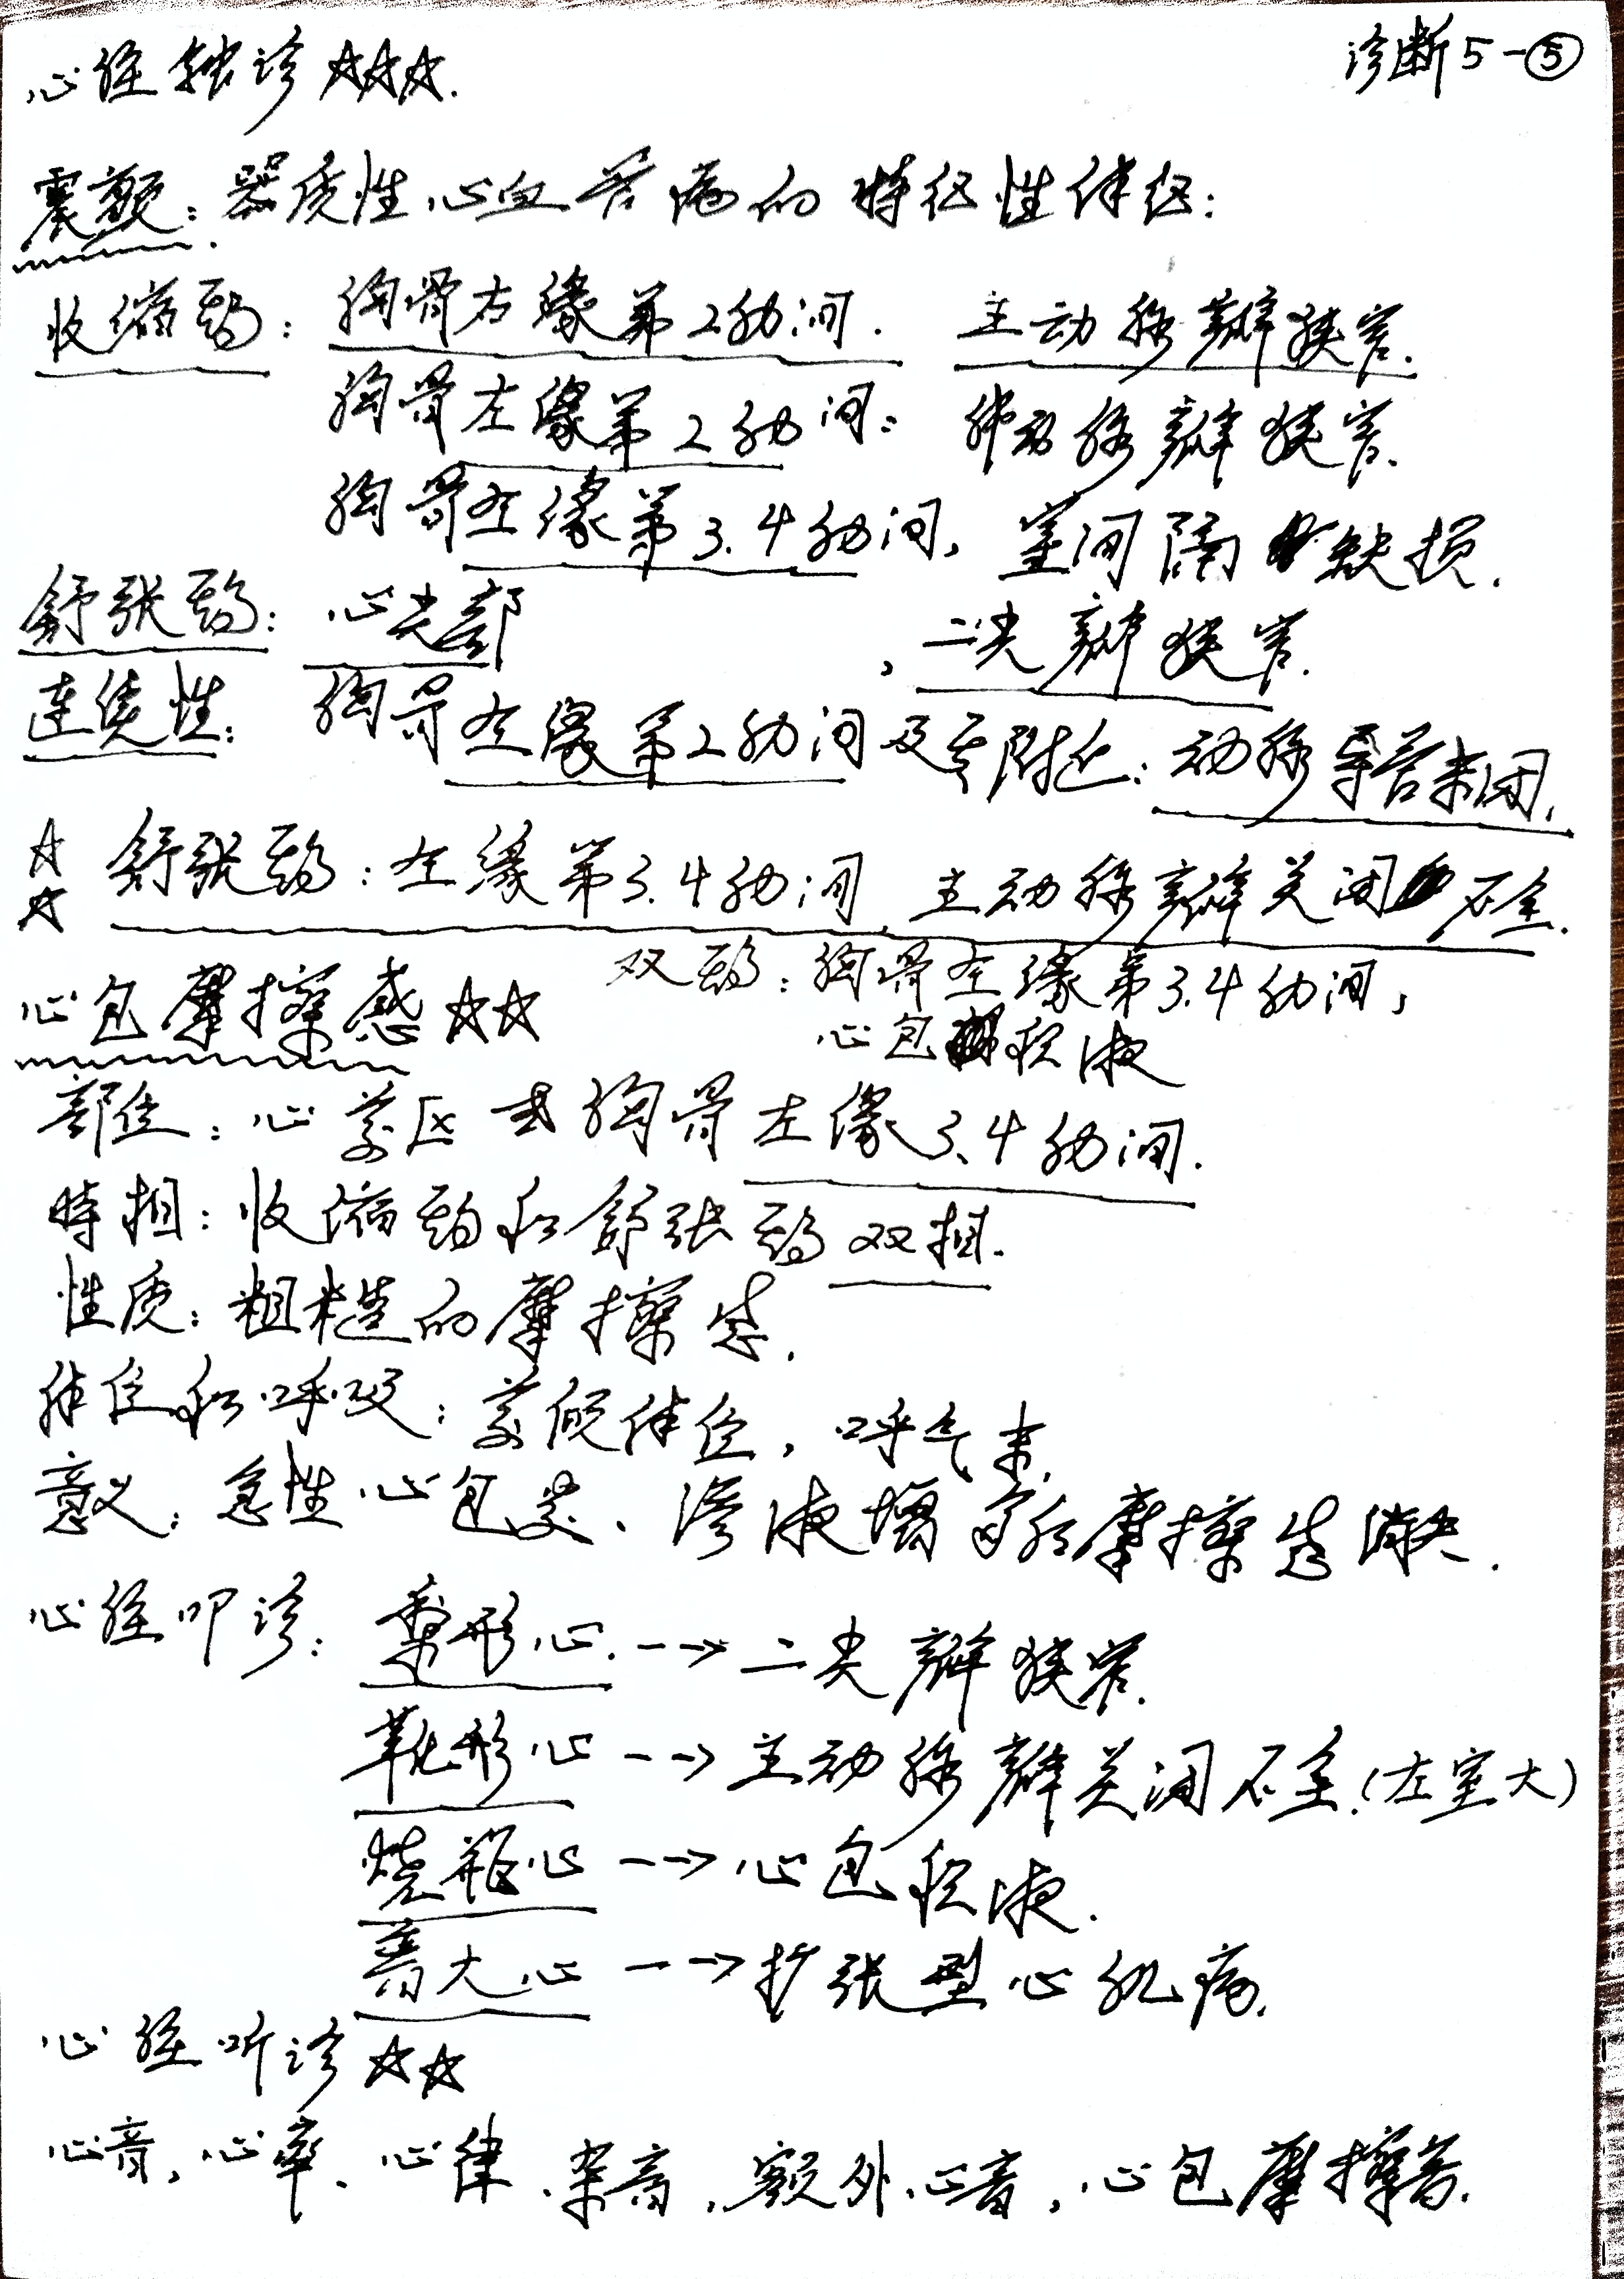 诊断5-⑤
心脏触诊☆☆☆.
震颤：器质性心血管病的特征性体征：
收缩期：胸骨右缘第2肋间. 主动脉瓣狭窄.
胸骨左缘第2肋间：肺动脉瓣狭窄.
胸骨左缘第3.4肋间, 室间隔缺损.
舒张期：心尖部 , 二尖瓣狭窄.
连续性：胸骨左缘第2肋间及其附近：动脉导管未闭.
☆☆ 舒张期：左缘第3.4肋间, 主动脉瓣关闭不全.
双期：胸骨左缘第3.4肋间,
心包积液
心包摩擦感☆☆
部位：心前区或胸骨左缘3.4肋间.
时相：收缩期和舒张期双相.
性质：粗糙的摩擦感.
体位和呼吸：前倾体位, 呼气末.
意义：急性心包炎、渗液增多后摩擦感消失.
心脏叩诊：梨形心. --→二尖瓣狭窄.
靴形心--→主动脉瓣关闭不全.(左室大)
烧瓶心--→心包积液.
普大心--→扩张型心肌病.
心脏听诊☆☆
心音, 心率、心律、杂音, 额外心音, 心包摩擦音.